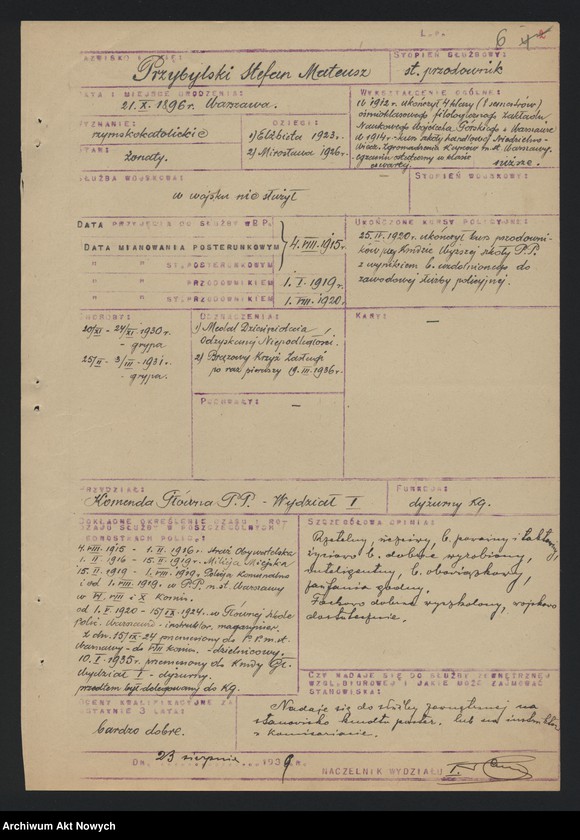 L.p.
6
NAZWISKO I IMIĘ:
Przybylski Stefan Mateusz
STOPIEŃ SŁUŻBOWY:
st. przodownik
DATA I MIEJSCE URODZENIA:
21.X.1896 r. Warszawa.
WYKSZTAŁCENIE OGÓLNE:
W 1912 r. ukończył 4 klasy
ośmioklasowego filologicznego Zakładu
Naukowego Wojciecha Górskiego w Warszawie
a 1914 r. kurs szkoły handlowej
Zgromadzenia Kupców m.st. Warszawy.
WYZNANIE:
rzymskokatolickie
STAN:
żonaty.
DZIECI:
1) Elżbieta 1923 r.
2) Mirosława 1926 r.
SŁUŻBA WOJSKOWA:
w wojsku nie służył
STOPIEŃ WOJSKOWY:
—
DATA PRZYJĘCIA DO SŁUŻBY W P.P.
DATA MIANOWANIA POSTERUNKOWYM
4.VIII.1915 r.
" " ST.POSTERUNKOWYM
" " PRZODOWNIKIEM
1.I.1919 r.
" " ST.PRZODOWNIKIEM
1.VIII.1920 r.
UKOŃCZONE KURSY POLICYJNE:
25.IV.1920 r. ukończył kurs przodowni-
ków przy Kmdzie Wyższej szkoły P.P.
z wynikiem b. uzdolnionego do
zawodowej służby policyjnej.
CHOROBY:
20/XI - 24/XI - 1930 r.
- grypa
25/II - 3/III - 1931 r.
- grypa.
ODZNACZENIA:
1) Medal Dziesięciolecia
Odzyskanej Niepodległości.
2) Brązowy Krzyż Zasługi
po raz pierwszy 19.III.1936 r.
KARY:
—
POCHWAŁY:
—
PRZYDZIAŁ:
Komenda Główna P.P. - Wydział I
FUNKCJA:
dyżurny KG.
DOKŁADNE OKREŚLENIE CZASU I RO-
DZAJU SŁUŻBY W POSZCZEGÓLNYCH
JEDNOSTKACH POLICJI:
4.VIII.1915 - 1.II.1916 r. Straż Obywatelska
1.II.1916 - 15.II.1919 r. Milicja Miejska
15.II.1919 - 1.VIII.1919 r. Policja Komunalna
i od 1.VIII.1919 r. w P.P. m.st. Warszawy
w VI, VIII i X Komis.
od 1.V.1920 - 15/IX.1924 r. w Głównej szkole
Polic. Warszawa - instruktor, magazynier.
z dn. 15/IX-24 przeniesiony do P.P. m.st.
Warszawy - do VIII komis. - dzielnicowy.
10.I.1935 r. przeniesiony do Kmdy Gł.
Wydział I - dyżurny.
przedtem był delegowany do KG.
SZCZEGÓŁOWA OPINIA:
Rzetelny, uczciwy, b. poważny i taktowny,
życiowo b. dobrze wyrobiony,
inteligentny, b. obowiązkowy,
zaufania godny.
Fachowo dobrze wyszkolony, wojskowo
dostatecznie.
CZY NADAJE SIĘ DO SŁUŻBY ZEWNĘTRZNEJ
WZGL.BIUROWEJ I JAKIE MOŻE ZAJMOWAĆ
STANOWISKA:
Nadaje się do służby zewnętrznej na
stanowisko kmdta poster. lub na instruktora
w komisariacie.
OCENY KWALIFIKACYJNE ZA
OSTATNIE 3 LATA:
bardzo dobre.
Dn. 23 sierpnia 1936 r.
NACZELNIK WYDZIAŁU I.
Archiwum Akt Nowych